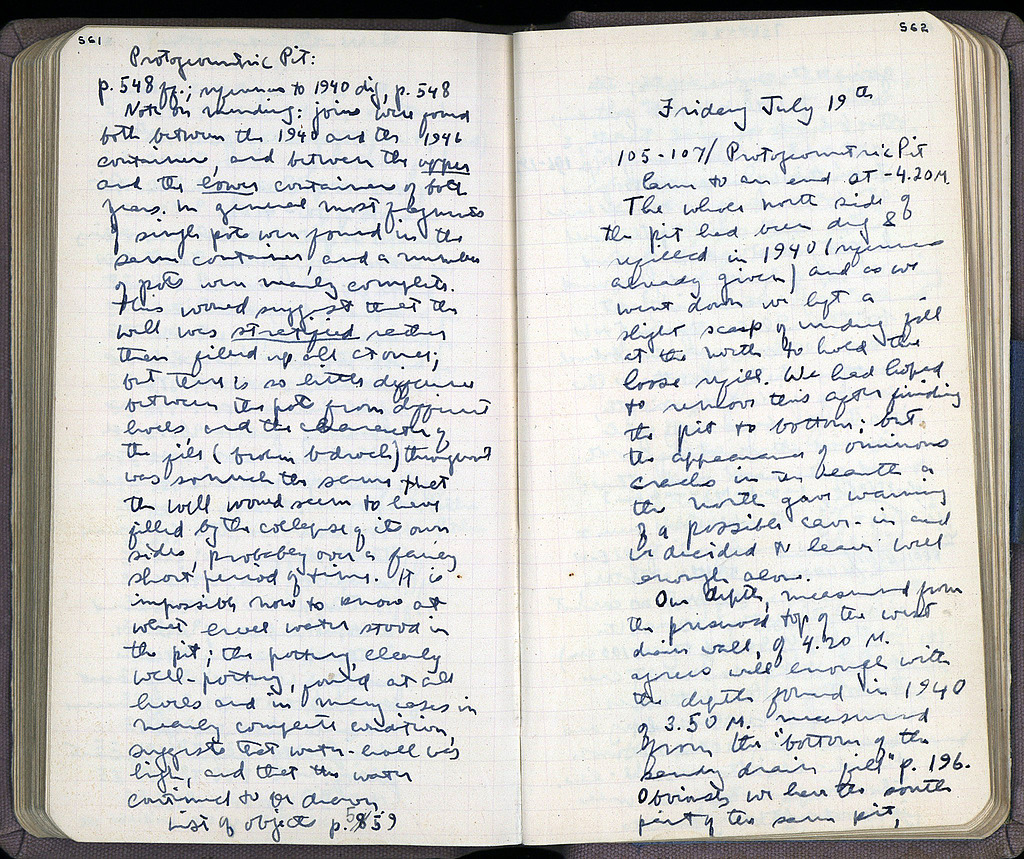 561
Protogeometric Pit:
p. 548 ff.; references to 1940 dig, p. 548
Note on mending: joins were found
both between the 1940 and the 1946
containers, and between the upper
and the lower containers of both
years. In general most fragments
of single pots were found in the
same container, and a number
of pots were nearly complete.
This would suggest that the
well was stratified rather
than filled up all at once;
but there is so little difference
between the pots from different
levels and the character of
the fill (broken bedrock) throughout
was so much the same that
the well would seem to have
filled by the collapse of its own
sides, probably over a fairly
short period of time. It is
impossible now to know at
what level water stood in
the pit; the pottery, clearly
well-pottery, found at all
levels and in many cases in
nearly complete condition,
suggests that water-level was
high, and that the water
continued to be drawn.
List of objects p. 559
562
Friday July 19th
105-107/ Protogeometric Pit
came to an end at -4.20 M.
The whole north side of
the pit had been dug &
refilled in 1940 (references
already given) and as we
went down we left a
slight scarp of undug fill
at the north to hold the
loose refill. We had hoped
to remove this after finding
the pit to bottom; but
the appearance of ominous
cracks in the earth
the north gave warning
of a possible cave-in and
we decided to leave well
enough alone.
Our depth, measured from
the preserved top of the west
drain wall, of 4.20 M.
agrees well enough with
the depth found in 1940
of 3.50 M. measured
from the "bottom of the
sandy drain fill" p. 196.
Obviously we have the south
part of the same pit,